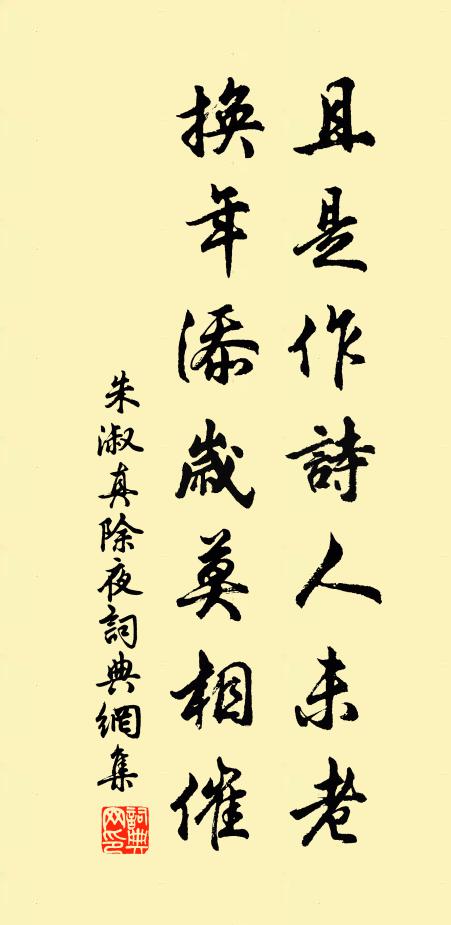 且是作詩人未老
換年添歲莫相催
朱淑真除夜詞典網集
詞典网印